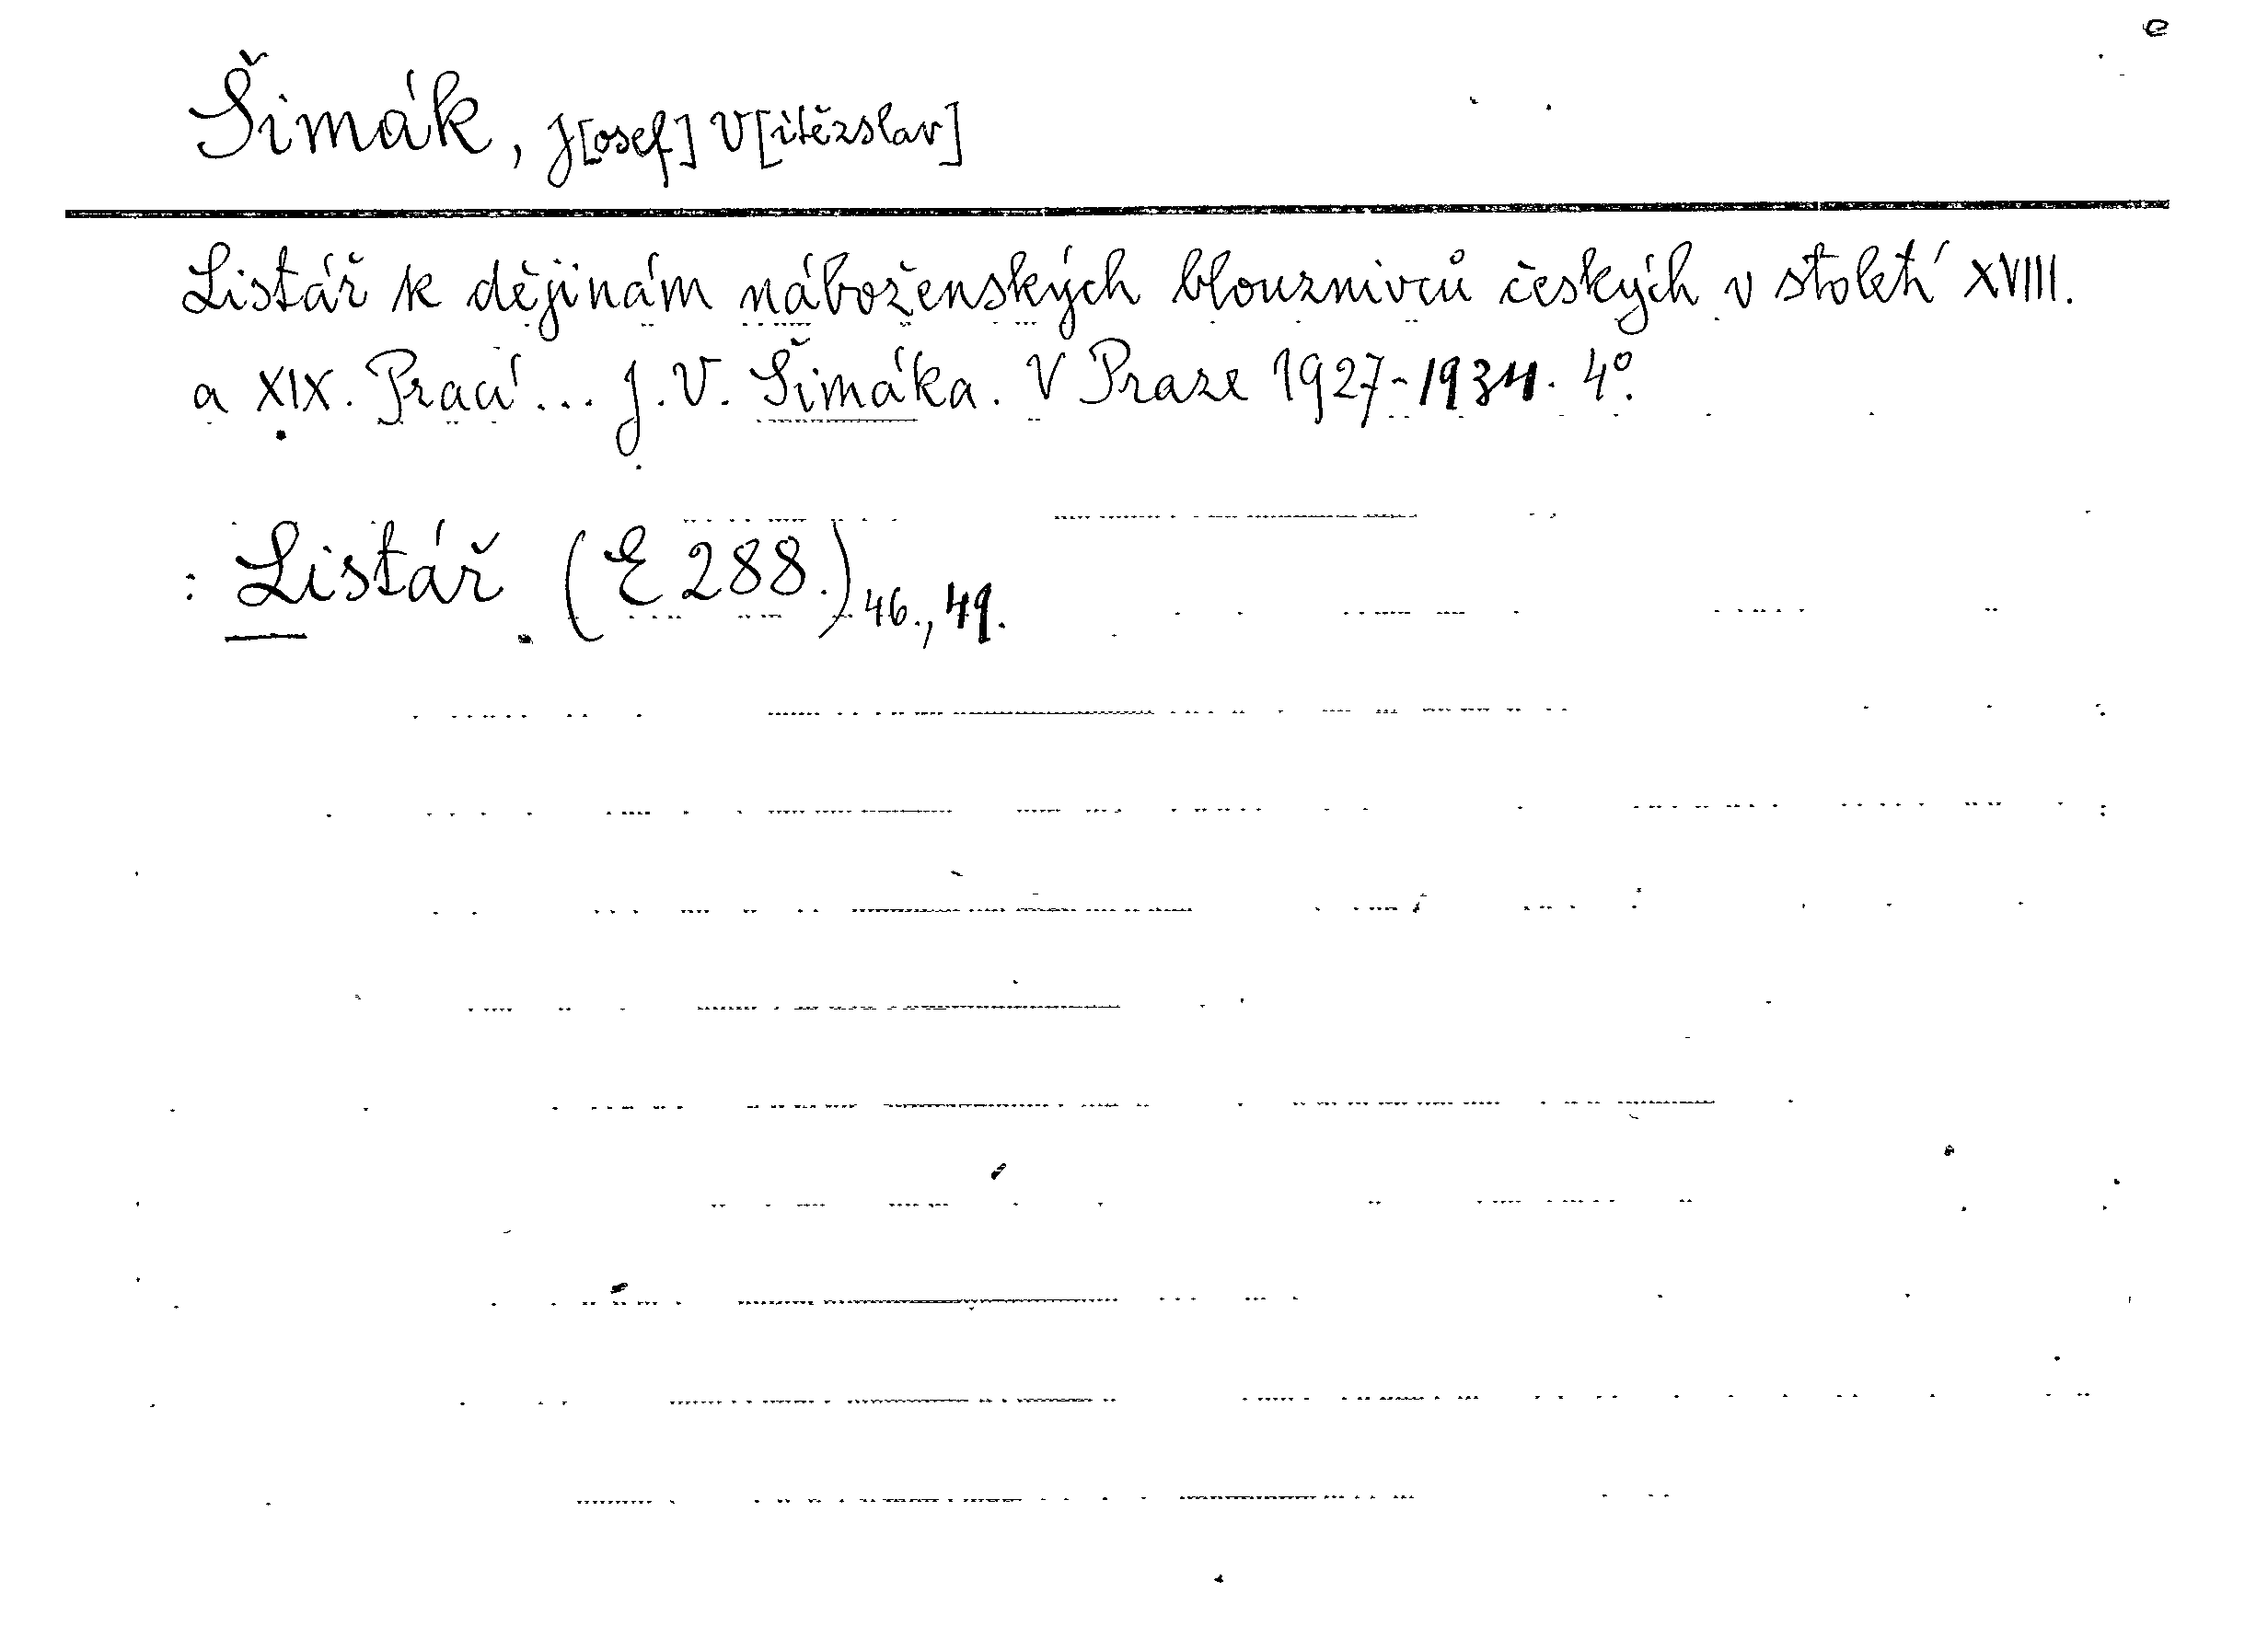 e
Šimák, J[osef] V[itězslav]
Listář k dějinám náboženských blouznivců českých v století XVIII.
a XIX. Prací... J. V. Šimáka. V Praze 1927-1934. 4°.
: Listář (E 288.) 46., 49.